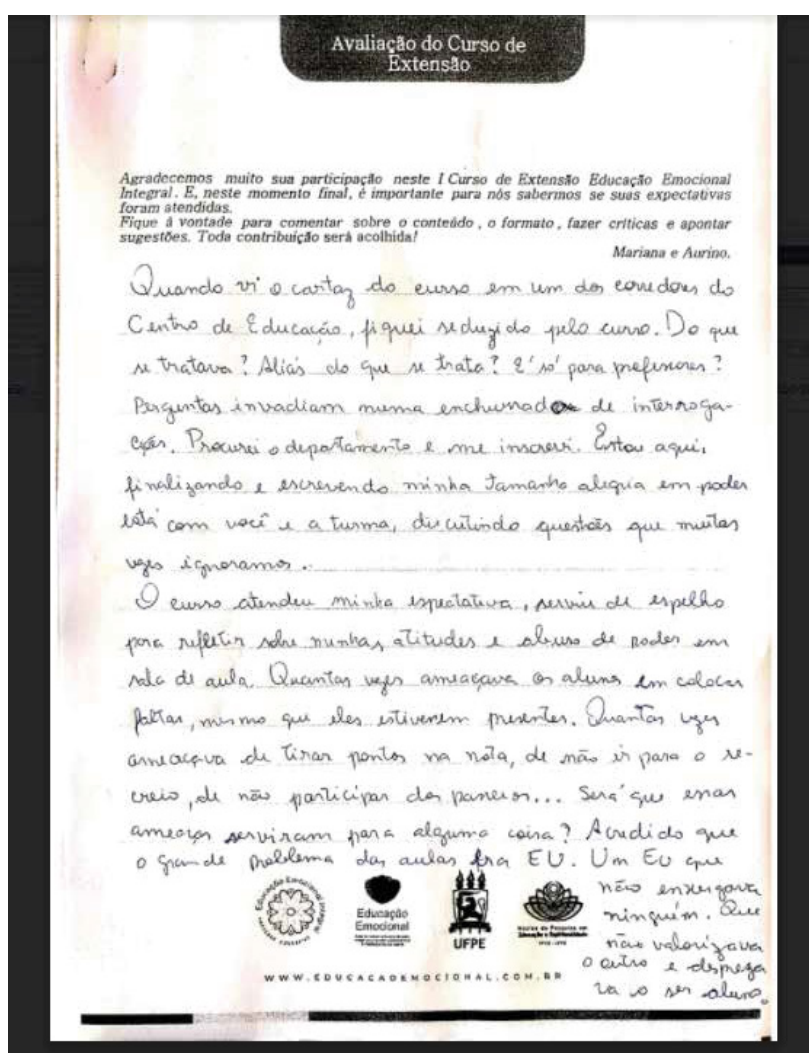 Avaliação do Curso de
Extensão
Agradecemos muito sua participação neste I Curso de Extensão Educação Emocional
Integral. E, neste momento final, é importante para nós sabermos se suas expectativas
foram atendidas.
Fique à vontade para comentar sobre o conteúdo , o formato , fazer críticas e apontar
sugestões. Toda contribuição será acolhida!
Mariana e Aurino.
Quando vi o cartaz do curso em um dos corredores do
Centro de Educação, fiquei seduzido pelo curso. Do que
se tratava? Aliás do que se trata? É só para professores?
Perguntas invadiam numa enchurrada de interroga-
ções. Procurei o departamento e me inscrevi. Estou aqui,
finalizando e escrevendo minha tamanha alegria em poder
está com você e a turma, discutindo questões que muitas
vezes ignoramos.
O curso atendeu minha espectativa, serviu de espelho
para refletir sobre minhas atitudes e abuso de poder em
sala de aula. Quantas vezes ameaçava os alunos em colocar
faltas, mesmo que eles estivessem presentes. Quantas vezes
ameaçava de tirar pontos na nota, de não ir para o re-
creio, de não participar dos passeios... Será que essas
ameaças serviram para alguma coisa? Acredido que
o grande problema das aulas era EU. Um EU que
não enxergava
ninguém. Que
não valorizava
o outro e despreza
va o ser aluno.
Educação Emocional Integral
Educação
Emocional
UFPE
Núcleo de Pesquisa em
Educação e Espiritualidade
WWW.EDUCACAOEMOCIONAL.COM.BR